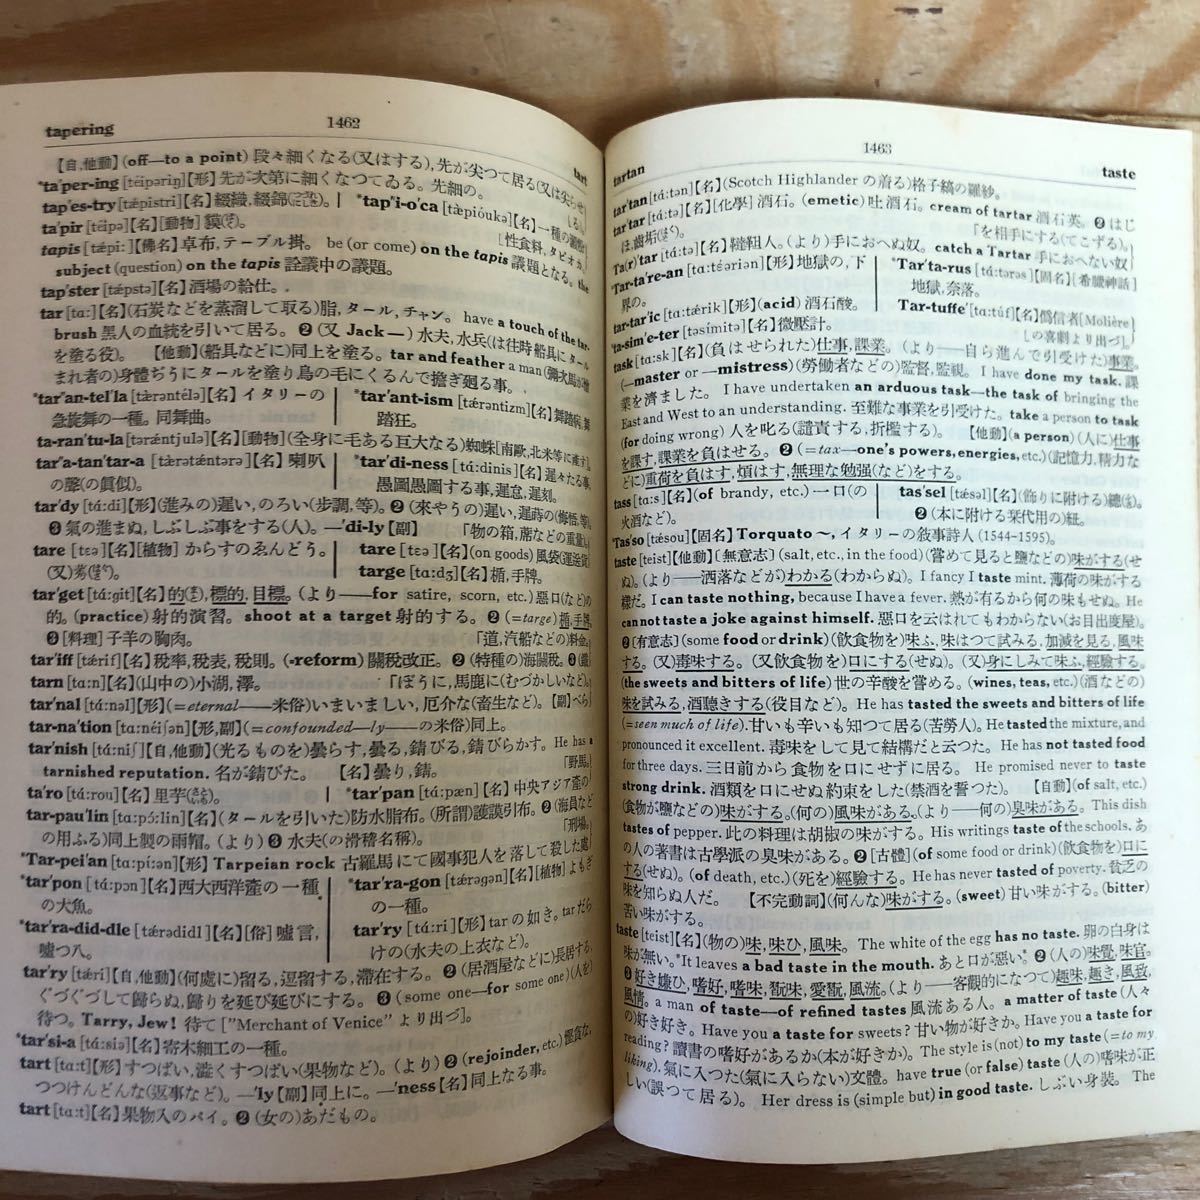 tapering
1462
tart
【自,他動】(off—to a point) 段々細くなる(又はする),先が尖つて居る(又は尖らせ
*ta'per-ing [téipəriŋ]【形】先が次第に細くなつてゐる。先細の。
tap'es-try [tǽpistri]【名】綴織,綴錦。
*tap"i-o'ca [tæ̀pióukə]【名】一種の澱粉
ta'pir [téipə]【名】[動物] 貘。
[性食料,タピオカ。
tapis [tǽpi:]【佛名】卓布,テーブル掛。 be (or come) on the tapis 議題となる。 the
subject (question) on the tapis 詮議中の議題。
tap'ster [tǽpstə]【名】酒場の給仕。
tar [tɑ:]【名】(石炭などを蒸溜して取る)脂,タール,チャン。 have a touch of the tar-
brush 黑人の血統を引いて居る。 ❷ (又 Jack—) 水夫,水兵(は往時船具にタール
を塗る役)。 【他動】(船具などに)同上を塗る。 tar and feather a man (彌次馬が憎
まれ者の)身體ぢうにタールを塗り鳥の毛にくるんで擔ぎ廻る事。
*tar'an-tel'la [tæ̀rəntélə]【名】イタリーの
急旋舞の一種。同舞曲。
*tar'ant-ism [tǽrəntizm]【名】舞踏病,舞
踏狂。
ta-ran'tu-la [tərǽntjulə]【名】[動物](全身に毛ある巨大なる)蜘蛛[南歐,北米等に產す]。
tar'a-tan'tar-a [tæ̀rətǽntərə]【名】喇叭
の聲(の眞似)。
*tar'di-ness [tɑ́:dinis]【名】遲々たる事,
愚圖愚圖する事,遲怠,遲刻。
tar'dy [tɑ́:di]【形】(進みの)遲い,のろい(步調,等)。 ❷ (來やうの)遲い,遲蒔の(悔悟,等)
❸ 氣の進まぬ,しぶしぶ事をする(人)。 —'di-ly【副】
「物の箱,蓆などの重量
tare [tɛə]【名】[植物] からすのゑんどう。
(又)莠。
tare [tɛə]【名】(on goods) 風袋(運送貨
targe [tɑ:dʒ]【名】楯,手牌。
tar'get [tɑ́:git]【名】的,標的,目標。(より—for satire, scorn, etc.) 惡口(など)の
的。(practice) 射的演習。 shoot at a target 射的する。 ❷ (=targe) 楯,手牌。
❸ [料理] 子羊の胸肉。
「道,汽船などの料金。
tar'iff [tǽrif]【名】稅率,稅表,稅則。 (-reform) 關稅改正。 ❷ (特種の)海關稅。 ❸ (鐵
tarn [tɑ:n]【名】(山中の)小湖,澤。
「ぼうに,馬鹿に(むづかしいなど)。
tar'nal [tɑ́:nəl]【形】(=eternal—米俗)いまいましい,厄介な(畜生など)。【副】べら
tar-na'tion [tɑ:néiʃən]【形,副】(=confounded—ly—の米俗)同上。
tar'nish [tɑ́:niʃ]【自,他動】(光るものを)曇らす,曇る,錆びる,錆びらかす。 He has a
tarnished reputation. 名が錆びた。 【名】曇り,錆。
「野馬。
ta'ro [tɑ́:rou]【名】里芋。
*tar'pan [tɑ́:pæn]【名】中央アジア產の
tar-pau'lin [tɑ:pɔ́:lin]【名】(タールを引いた)防水脂布。(所謂)護謨引布。 ❷ (海員など
の用ふる)同上製の雨帽。(より) ❸ 水夫(の滑稽名稱)。
「刑場。
*Tar-pei'an [tɑ:pí:ən]【形】 Tarpeian rock 古羅馬にて國事犯人を落して殺した處
*tar'pon [tɑ́:pɔn]【名】西大西洋產の一種
の大魚。
*tar'ra-gon [tǽrəgən]【名】[植物] よもぎ
の一種。
*tar'ra-did-dle [tǽrədidl]【名】[俗] 噓言,
噓つ八。
tar'ry [tɑ́:ri]【形】tar の如き。tar だら
けの(水夫の上衣など)。
tar'ry [tǽri]【自,他動】(何處に)留る,逗留する,滯在する。 ❷ (居酒屋などに)長居する,
ぐづぐづして歸らぬ,歸りを延び延びにする。 ❸ (some one—for some one)(人を)
待つ。 Tarry, Jew! 待て ["Merchant of Venice" より出づ]。
*tar'si-a [tɑ́:siə]【名】寄木細工の一種。
tart [tɑ:t]【形】すつぱい,澁くすつぱい(果物など)。(より) ❷ (rejoinder, etc.) 慳貪な,
つつけんどんな(返事など)。 —'ly【副】同上に。 —'ness【名】同上なる事。
tart [tɑ:t]【名】果物入のパイ。 ❷ (女の)あだもの。
1463
tartan
taste
tar'tan [tɑ́:tən]【名】(Scotch Highlander の着る)格子縞の羅紗。
tar'tar [tɑ́:tə]【名】[化學] 酒石。(emetic) 吐酒石。 cream of tartar 酒石英。 ❷ はじ
ほ,齒垢。
「を相手にする(てこずる)。
Ta(r)'tar [tɑ́:tə]【名】韃靼人。(より)手におへぬ奴。 catch a Tartar 手におへない奴
*Tar-ta're-an [tɑ:tɛ́əriən]【形】地獄の,下
界の。
*Tar'ta-rus [tɑ́:tərəs]【固名】[希臘神話]
地獄,奈落。
tar-tar'ic [tɑ:tǽrik]【形】(acid) 酒石酸。
Tar-tuffe' [tɑ:túf]【名】僞信者[Molière
*ta-sim'e-ter [təsímitə]【名】微壓計。
[の喜劇より出づ]。
task [tɑ:sk]【名】(負はせられた)仕事,課業。(より—自ら進んで引受けた)事業。
(—master or —mistress) (勞働者などの)監督,監視。 I have done my task. 課
業を濟ました。 I have undertaken an arduous task—the task of bringing the
East and West to an understanding. 至難な事業を引受けた。 take a person to task
(for doing wrong) 人を叱る(譴責する,折檻する)。 【他動】(a person) (人に)仕事
を課す,課業を負はせる。 ❷ (=tax—one's powers, energies, etc.) (記憶力,精力な
どに)重荷を負はす,煩はす,無理な勉强(など)をする。
tass [tɑ:s]【名】(of brandy, etc.) 一口(の
火酒など)。
tas'sel [tǽsəl]【名】(飾りに附ける)總。
❷ (本に附ける栞代用の)紐。
*Tas'so [tǽsou]【固名】 Torquato ~, イタリーの敘事詩人 (1544–1595).
taste [teist]【他動】[無意志] (salt, etc., in the food) (嘗めて見ると鹽などの)味がする(せ
ぬ)。(より—洒落などが)わかる(わからぬ)。 I fancy I taste mint. 薄荷の味がする
樣だ。 I can taste nothing, because I have a fever. 熱が有るから何の味もせぬ。 He
can not taste a joke against himself. 惡口を云はれてもわからない(お目出度屋)。
❷ [有意志] (some food or drink) (飮食物を)味ふ,味はつて試みる,加減を見る,風味
する。(又)毒味する。(又飮食物を)口にする(せぬ)。(又)身にしみて味ふ,經驗する。
(the sweets and bitters of life) 世の辛酸を嘗める。 (wines, teas, etc.) (酒などの)
味を試みる,酒聽きする(役目など)。 He has tasted the sweets and bitters of life
(=seen much of life). 甘いも辛いも知つて居る(苦勞人)。 He tasted the mixture, and
pronounced it excellent. 毒味をして見て結構だと云つた。 He has not tasted food
for three days. 三日前から食物を口にせずに居る。 He promised never to taste
strong drink. 酒類を口にせぬ約束をした(禁酒を誓つた)。 【自動】(of salt, etc.)
(食物が鹽などの)味がする。(何の)風味がある。(より—何の)臭味がある。 This dish
tastes of pepper. 此の料理は胡椒の味がする。 His writings taste of the schools. あ
の人の著書は古學派の臭味がある。 ❷ [古體] (of some food or drink) (飮食物を)口に
する(せぬ)。(of death, etc.) (死を)經驗する。 He has never tasted of poverty. 貧乏の
味を知らぬ人だ。 【不完動詞】(何んな)味がする。 (sweet) 甘い味がする。 (bitter)
苦い味がする。
taste [teist]【名】(物の)味,味ひ,風味。 The white of the egg has no taste. 卵の白身は
味が無い。 *It leaves a bad taste in the mouth. あと口が惡い。* ❷ (人の)味覺,味官。
❸ 好き嫌ひ,嗜好,嗜味,翫味,愛翫,風流。(より—客觀的になつて)趣味,趣き,風致,
風情。 a man of taste—of refined tastes 風流ある人。 a matter of taste (人々
の)好き好き。 Have you a taste for sweets? 甘い物が好きか。 Have you a taste for
reading? 讀書の嗜好があるか(本が好きか)。 The style is (not) to my taste (=to my
liking). 氣に入つた(氣に入らない)文體。 have true (or false) taste (人の)嗜味が正
しい(誤つて居る)。 Her dress is (simple but) in good taste. しぶい身裝。 The